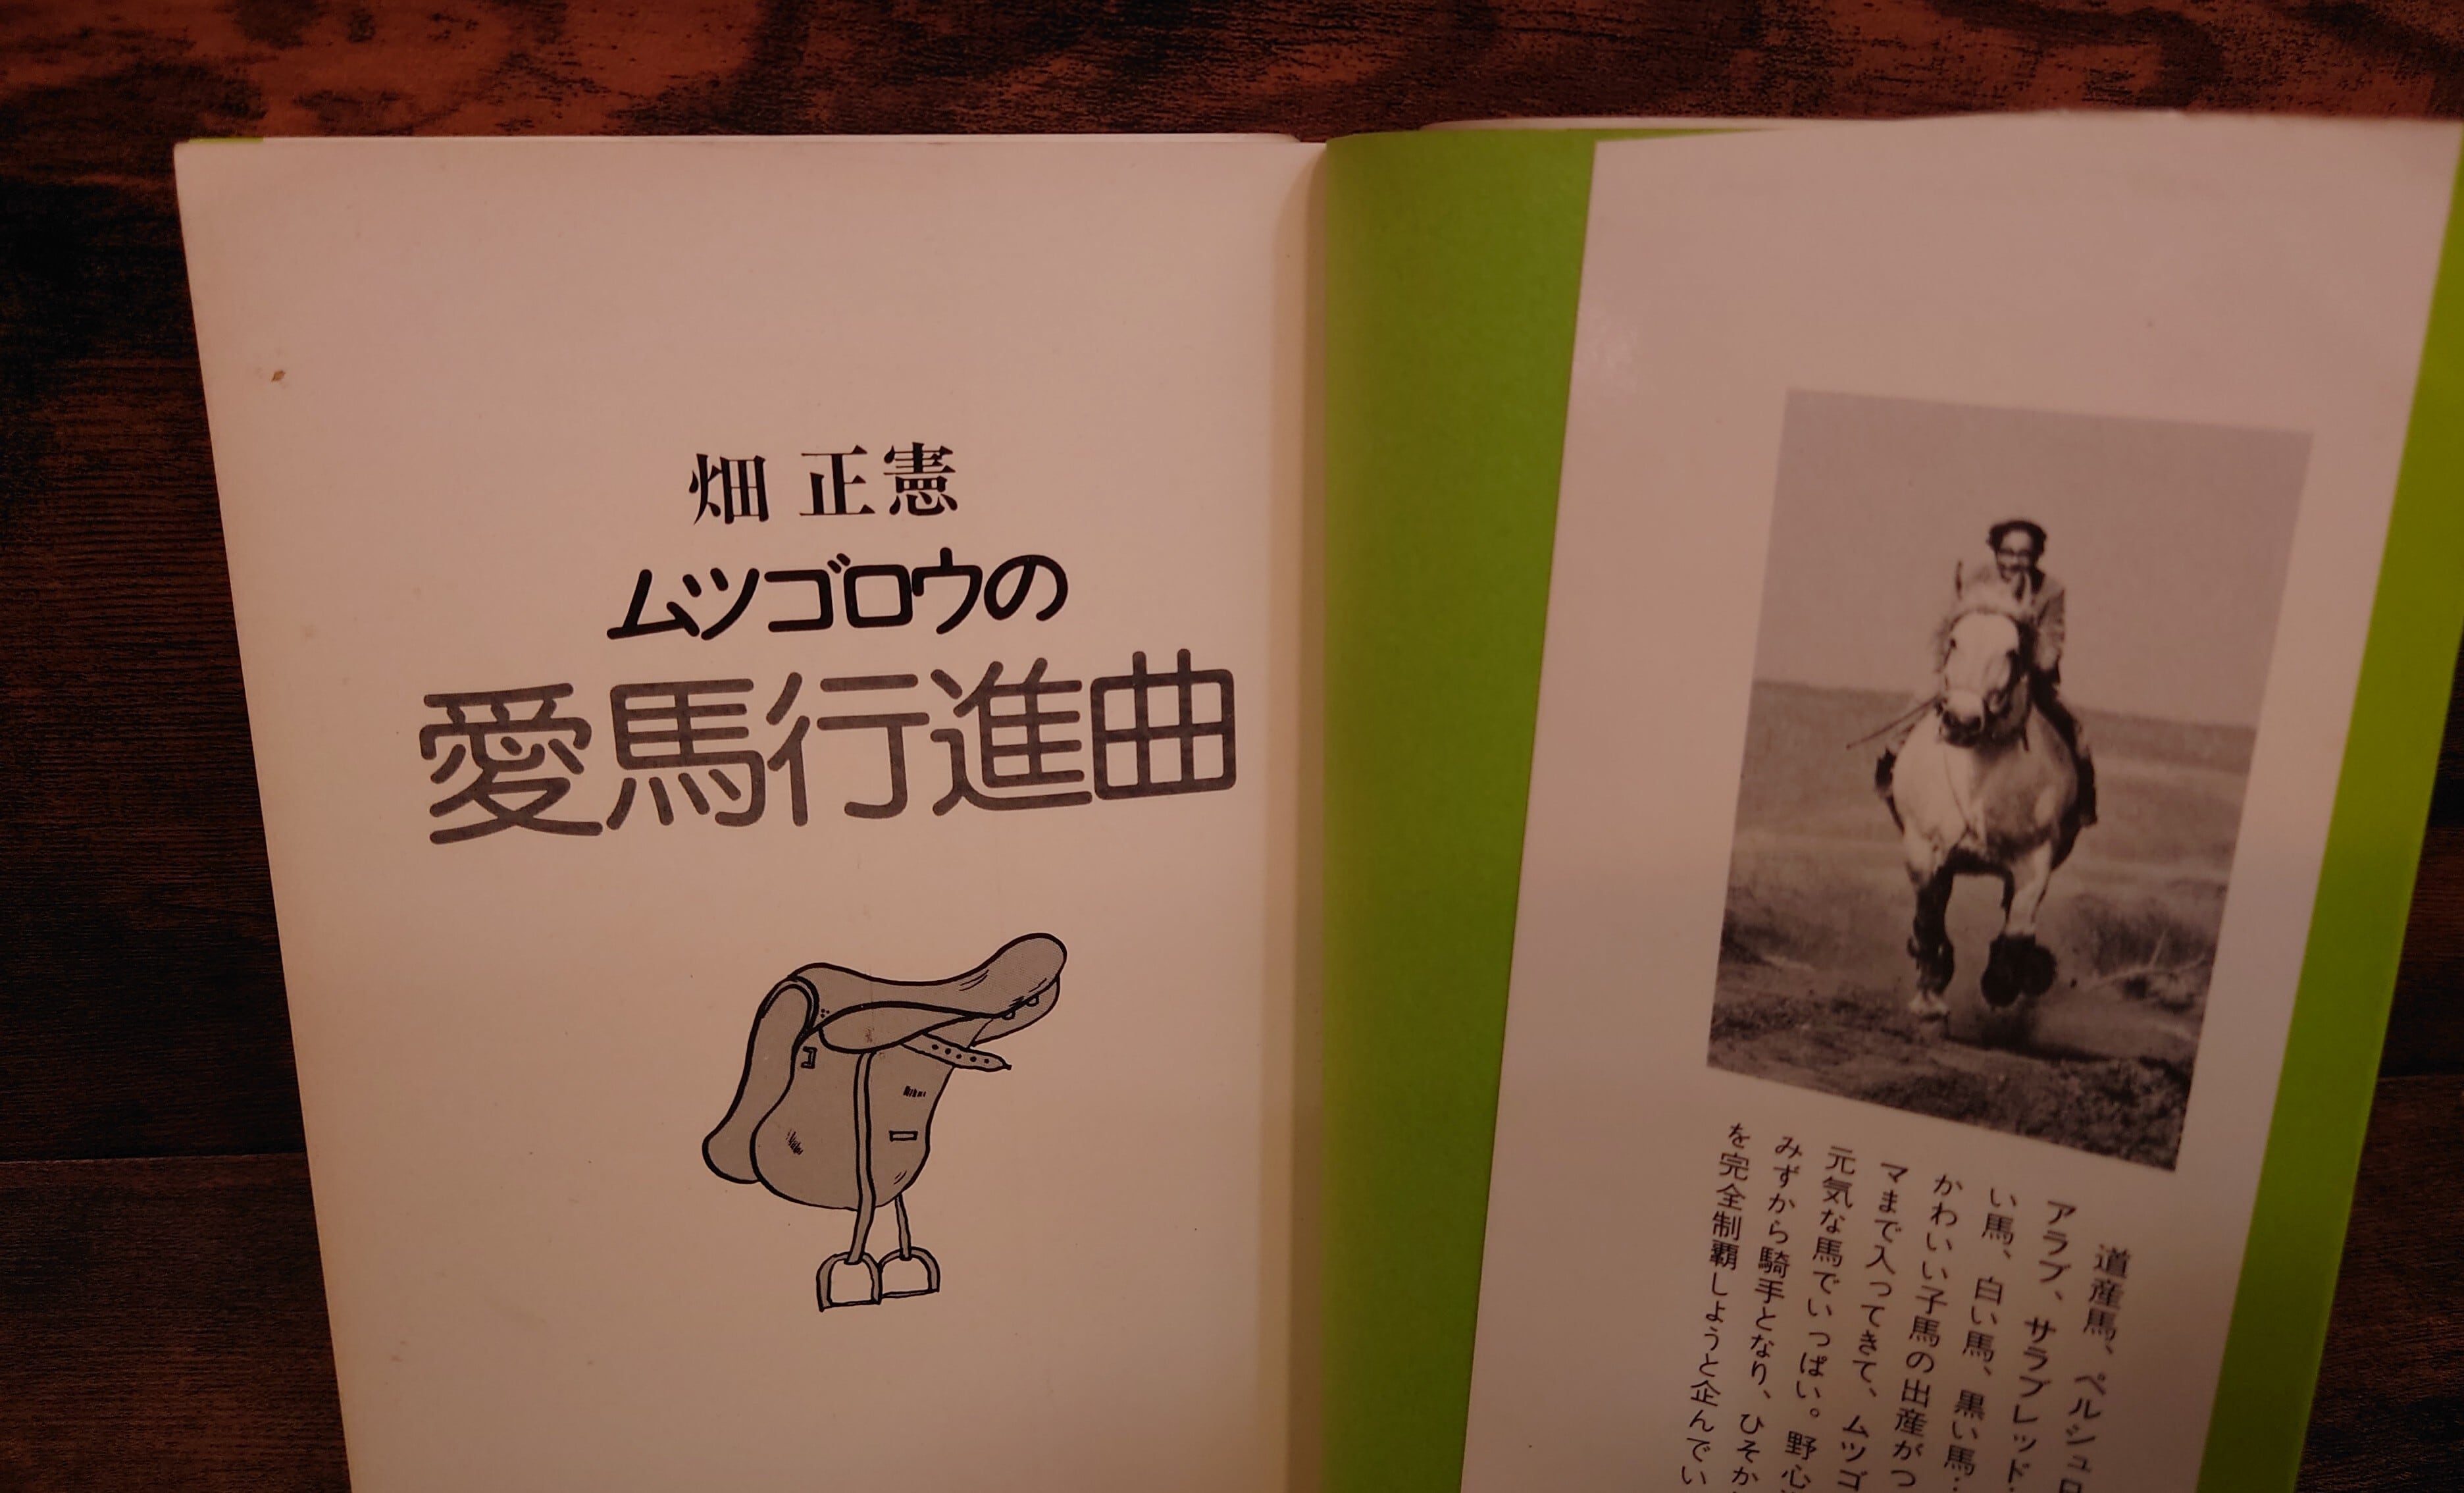 畑 正憲
ムツゴロウの
愛馬行進曲
道産馬、ペルシュロ
アラブ、サラブレッド、
い馬、白い馬、黒い馬…
かわいい子馬の出産がつ
マまで入ってきて、ムツゴ
元気な馬でいっぱい。野心
みずから騎手となり、ひそか
を完全制覇しようと企んでい